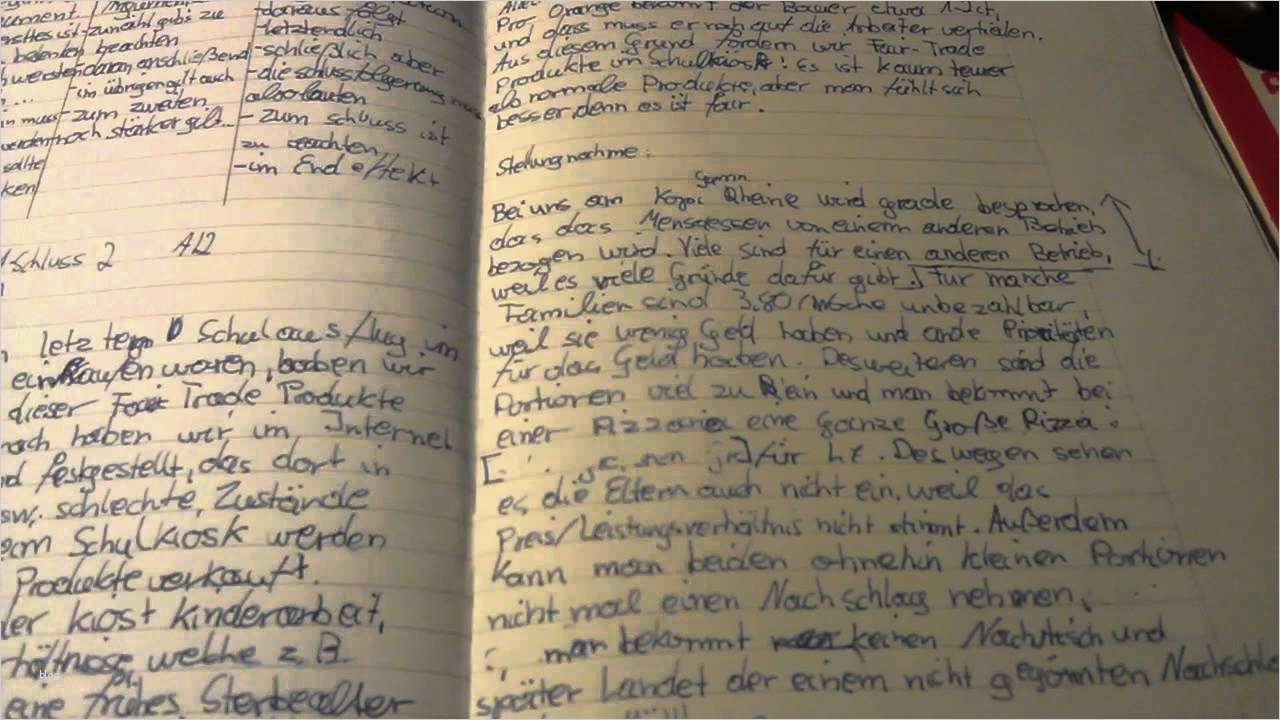 ument. / Argument
erstes ist -zunächst gibt's zu
bedenken beachten
werste -daran anschließend
-im übrigen gilt auch
in muss -zum zweiten
werden noch stärker gilt...
sollte
ken
-daraus folgt
-letztendlich
-schließlich aber
-die schlussfolgerung muss
also lauten
- zum schluss ist
zu beachten
-im End effekt
/Schluss 2 AL2
letztem Schulaus/lug in
einkaufen waren, haben wir
dieser Fair Trade Produkte
nach haben wir im Internet
d festgestellt, das dort in
sw. schlechte, Zustände
eam Schulkiosk werden
Produkte verkauft.
der kiost kinderarbeit,
hältnisse, welche z.B.
eine frühes Sterbealter
Pro Orange bekommt der Bauer etwa 1ct,
und dass muss er noch auf die Arbeiter verteilen.
Aus diesem Grund fordern wir Fear-Trade
Produkte im Schulkiosk! Es ist kaum teuer
als normale Produkte, aber man fühlt sich
besser denn es ist fair.
Stellungnahme:
Bei uns am Kopi Rheine wird grade besprochen,
das das Mensaessen von einem anderen Betrieb
bezogen wird. Viele sind für einen anderen Betrieb,
weil es viele Gründe dafür gibt.] Für manche
Familien sind 3,80/Woche unbezahlbar,
weil sie wenig Geld haben und ande Prioritäten
für das Geld haben. Desweiteren sind die
Portionen viel zu klein und man bekommt bei
einer Pizzaria eine ganze Große Pizza
[ für 4€. Deswegen sehen
es die Eltern auch nicht ein, weil das
Preis/Leistungsverhältnis nicht stimmt. Außerdem
kann man bei den ohnehin kleinen Portionen
nicht mal einen Nachschlag nehmen,
man bekommt keinen Nachtisch und
später Landet der einem nicht gegönnten Nachschla